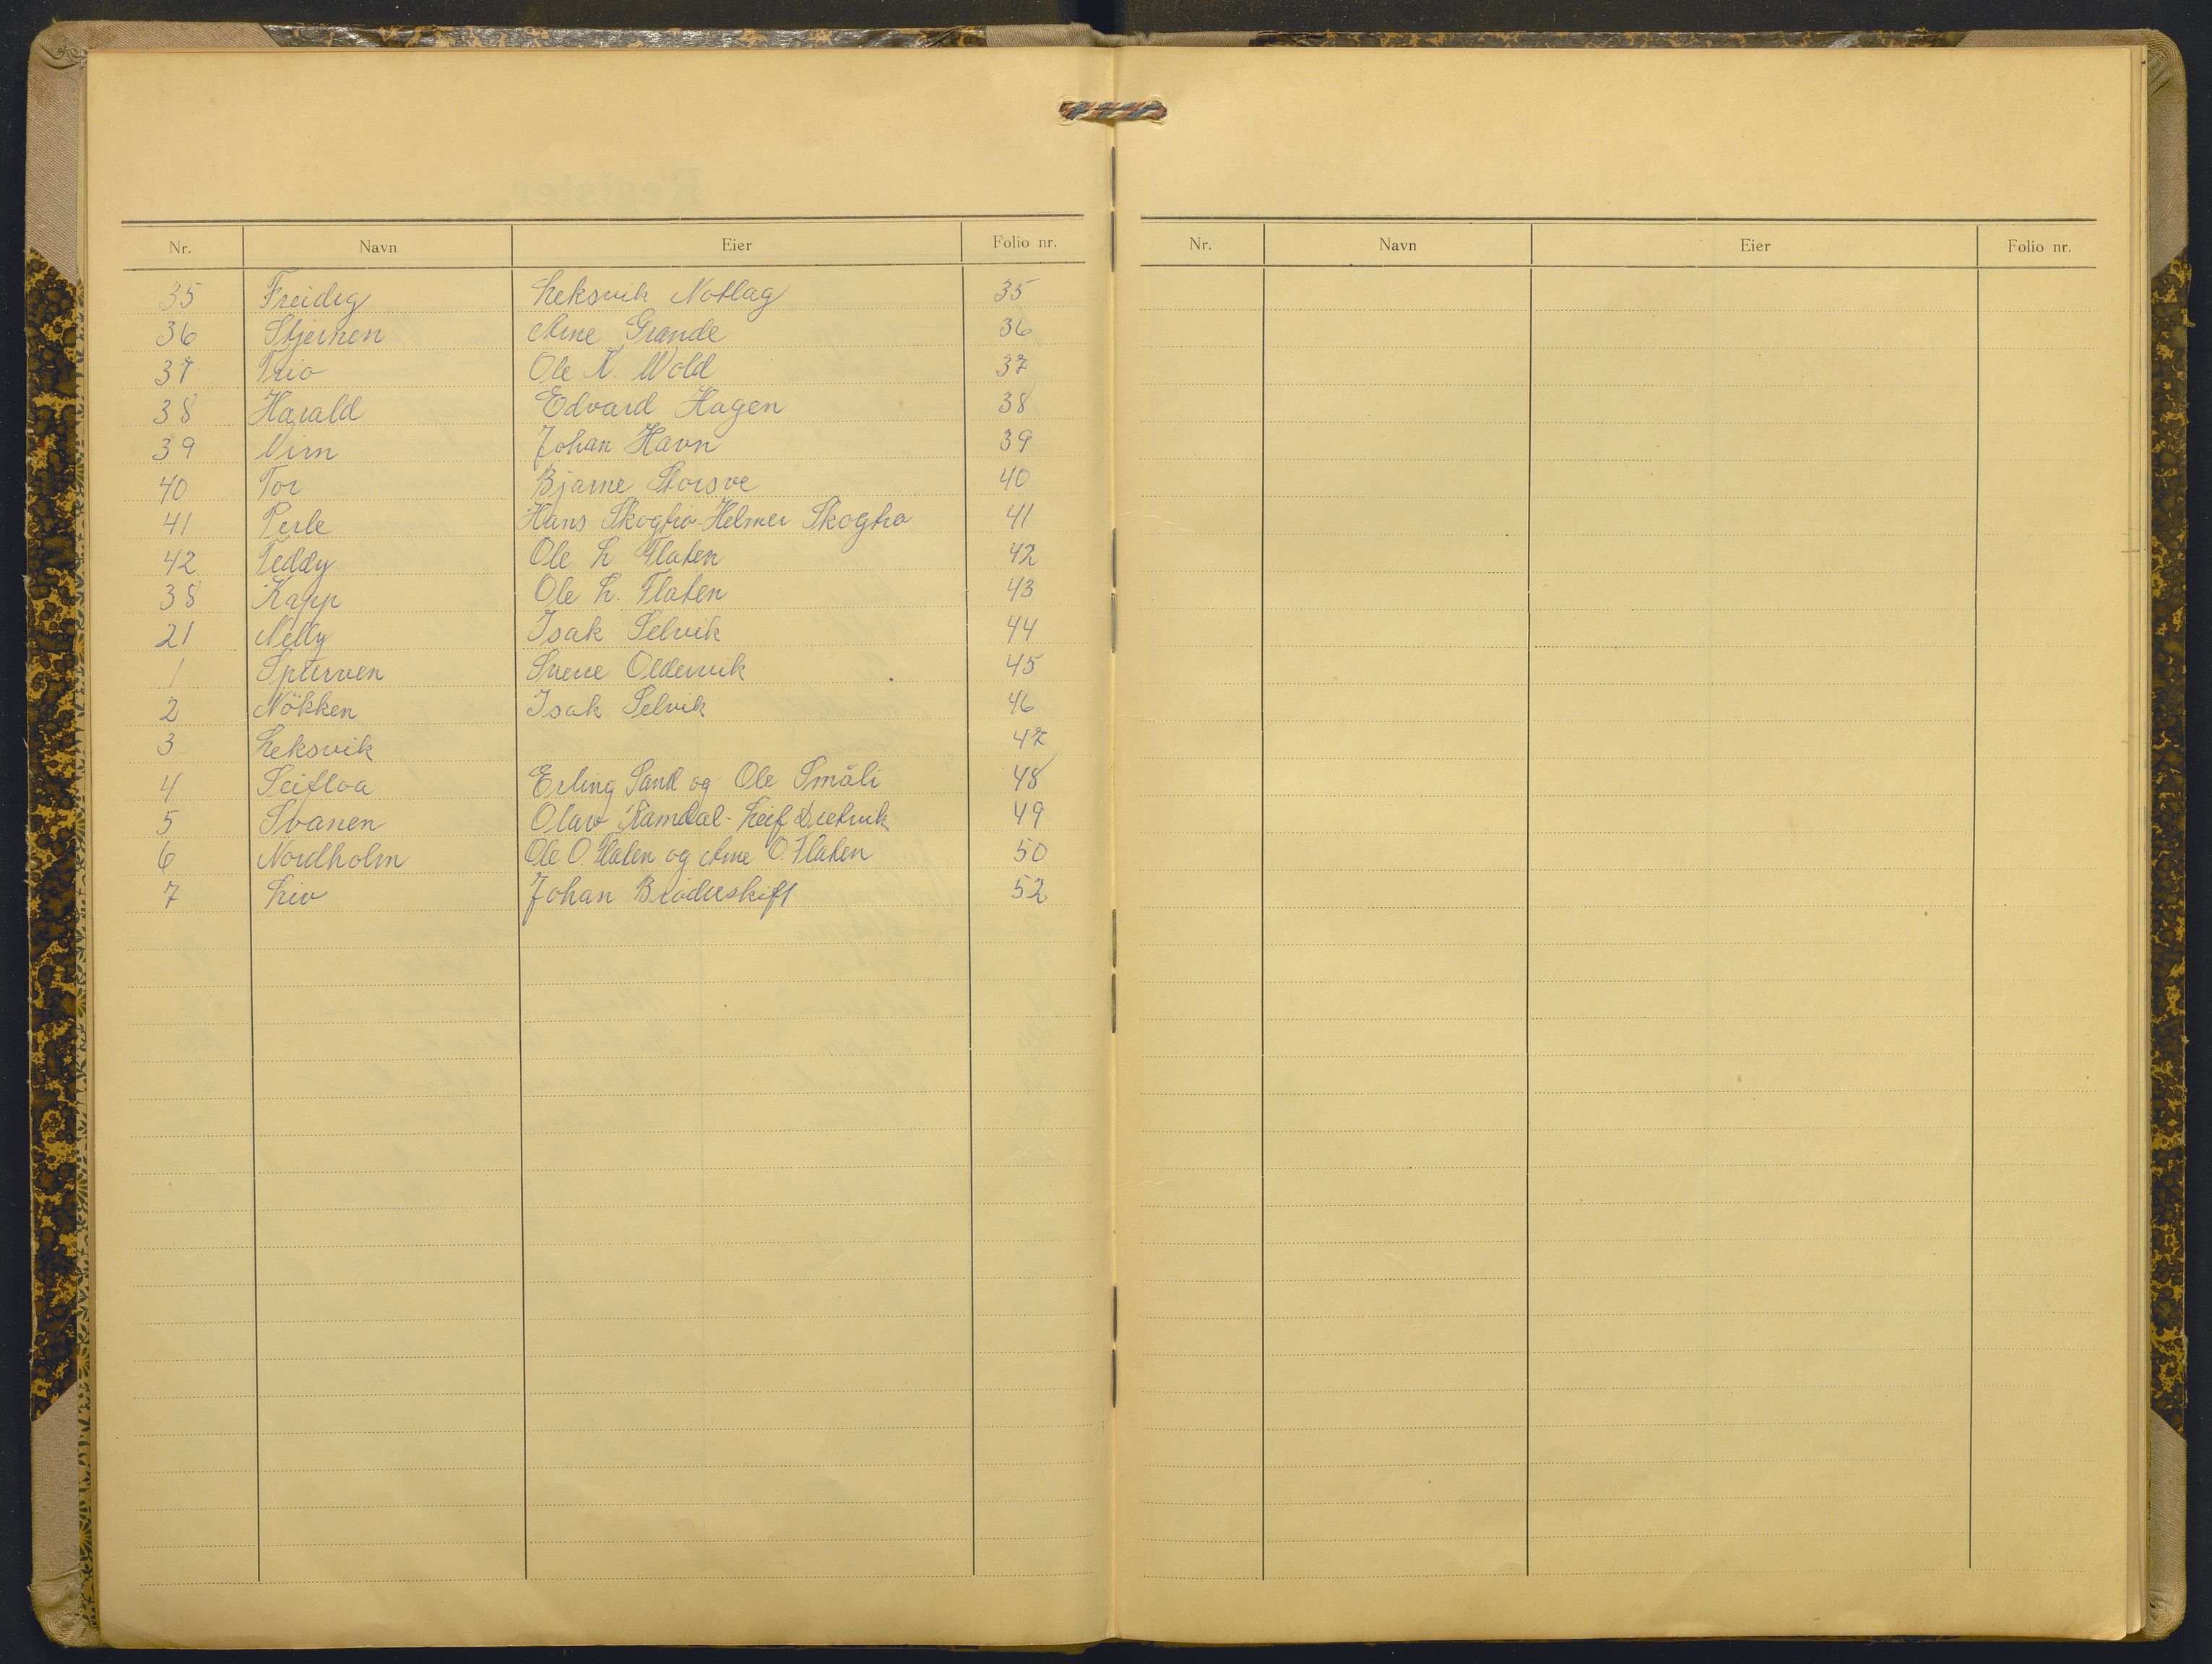 Nr. Navn Eier Folio nr.
35 Freidig Leksvik Notlag 35
36 Stjernen Arne Grande 36
37 Trio Ole K. Wold 37
38 Harald Edvard Hagen 38
39 Johan Havn 39
40 Tor Bjarne Storsve 40
41 Perle Hans Skoghø-Helmer Skoghø 41
42 Teddy Ole L Flaten 42
38 Kapp Ole L. Flaten 43
21 Nelly Isak Selvik 44
1 Spurven Sverre Oldervik 45
2 Nökken Isak Selvik 46
3 Leksvik 47
4 Seifloa Erling Sand og Ole Småli 48
5 Svanen Olav Ramdal - Leif Dretvik 49
6 Nordholm Ole O. Flaten og Arne O. Flaten 50
7 Liv Johan Brøderskift 52
Nr. Navn Eier Folio nr.